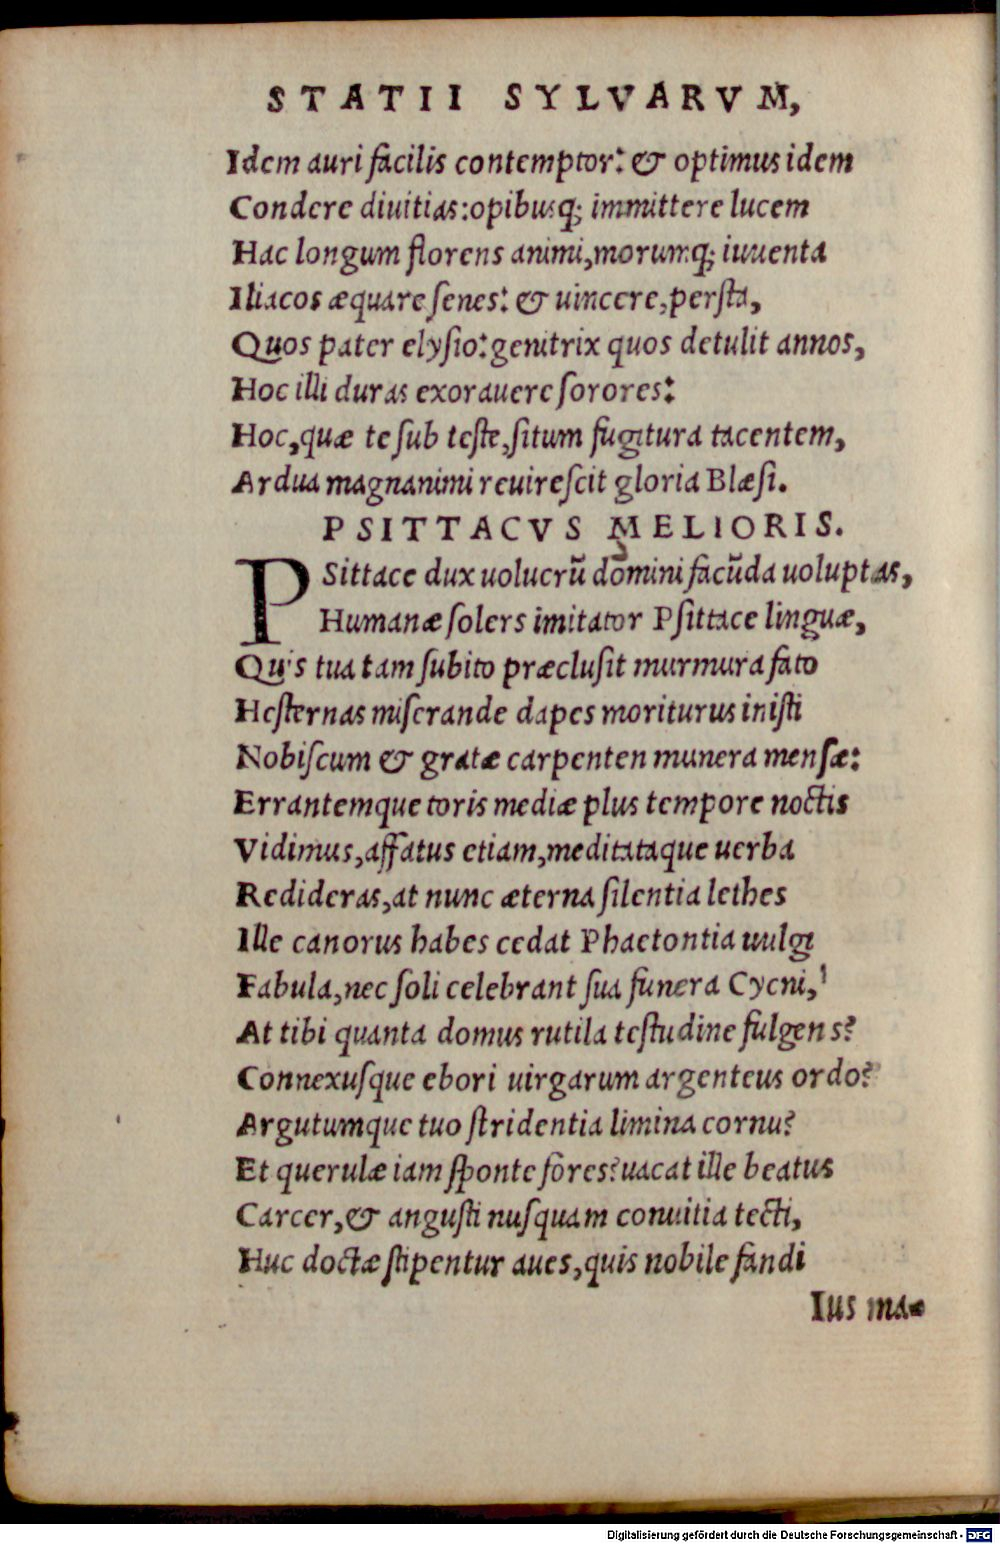 STATII SYLVARVM,
Idem auri facilis contemptor: & optimus idem
Condere diuitias: opibusq; immittere lucem
Hac longum florens animi, morumq; iuuenta
Iliacos æquare senes: & uincere, persta,
Quos pater elysio: genitrix quos detulit annos,
Hoc illi duras exorauere sorores:
Hoc, quæ te sub teste, situm fugitura tacentem,
Ardua magnanimi reuirescit gloria Blæsi.
PSITTACVS MELIORIS.
PSittace dux uolucrũ domini facũda uoluptas,
Humanæ solers imitator Psittace linguæ,
Quis tua tam subito præclusit murmura fato
Hesternas miserande dapes moriturus inisti
Nobiscum & gratæ carpenten munera mensæ:
Errantemque toris mediæ plus tempore noctis
Vidimus, affatus etiam, meditataque uerba
Redideras, at nunc æterna silentia lethes
Ille canorus habes cedat Phaetontia uulgi
Fabula, nec soli celebrant sua funera Cycni,
At tibi quanta domus rutila testudine fulgens?
Connexusque ebori uirgarum argenteus ordo?
Argutumque tuo stridentia limina cornu?
Et querulæ iam sponte fores? uacat ille beatus
Carcer, & angusti nusquam conuitia tecti,
Huc doctæ stipentur aues, quis nobile fandi
Ius ma-
Digitalisierung gefördert durch die Deutsche Forschungsgemeinschaft - DFG